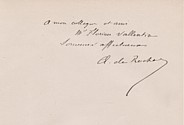 A mon collègue et ami
Mr Florian Vallentin
Souvenir affectueux
A. de Rochas